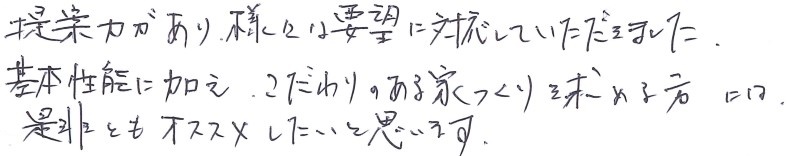 提案力があり、様々な要望に対応していただきました。
基本性能に加え、こだわりのある家づくりを求める方には、
是非ともオススメしたいと思います。